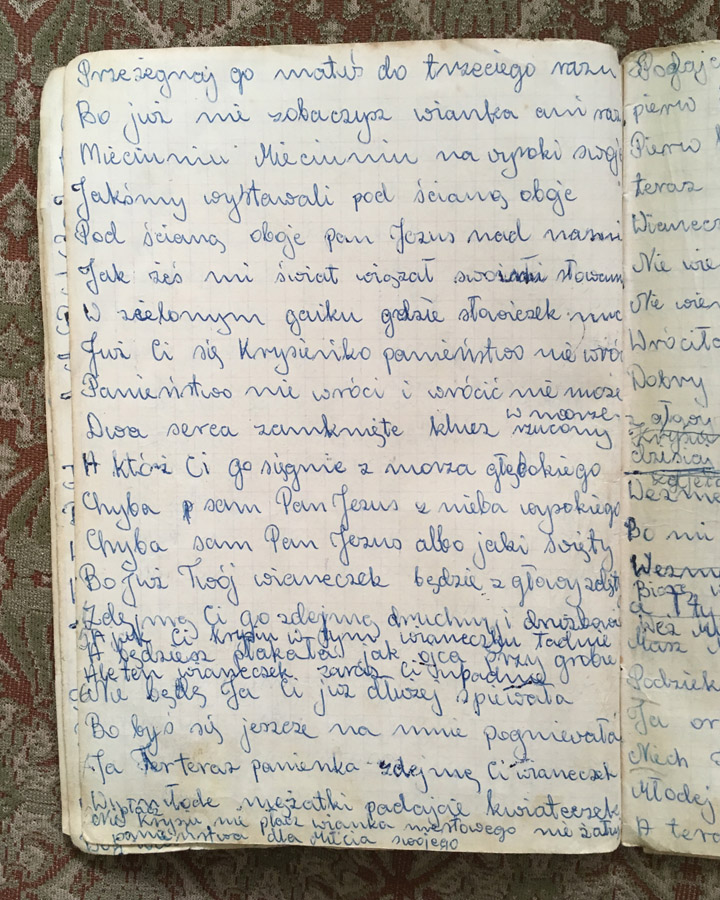 Przeżegnaj go matuś do trzeciego razu
Bo już nie zobaczysz wianka ani raz
Mieciuniu Mieciuniu na wysoki swoje
Jakómy wystawali pod ścianą oboje
Pod ścianą oboje pan Jezus nad nasmi
Jak żeś mi świat wiązał słowam
W zielonym gaiku gdzie słowiczek
Już Ci się Krysieńko panieństwo nie wróc
Panieństwo nie wróci i wrócić nie może
Dwa serca zamknięte klucz rzucony w morze
A któż Ci go sięgnie z morza głębokiego
Chyba sam Pan Jezus z nieba wysokiego
Chyba sam Pan Jezus albo jaki święty
Bo już Twój wianeczek będzie z głowy zdjęt
Zdejmą Ci go zdejmą druchny i
A jak Ci Krysiu w tym wianeczku ładnie
A będziesz płakała jak ojca przy grobie
Ale ten wianeczek zaraz Ci upadnie
Nie będę Ja Ci już dłużej śpiewała
Bo byś się jeszcze na mnie pogniewała
Ja teraz panienka zdejmę Ci wianeczek
młode mężatki padajcie kwiateczek
Nie Krysiu nie płacz wianka mestowego nie żałuj
panieństwa dla Miecia swojego
pierw
Pierw
teraz
Wianecz
Nie wie
Nie wien
Wróciła
Dobry
z głowy
Krysiu
dzisiaj
Bo mi
Podziek
Ja
Niech
Młodej
A tera